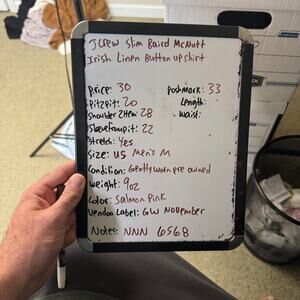 J CREW Slim Baird McNutt
Irish Linen Button up shirt
Price: 30
Poshmark: 33
Pit2Pit: 20
Length:
Shoulder 2 Hem: 28
Waist:
Sleevefrompit: 22
Stretch: Yes
Size: US Men's M
Condition: Gently worn pre owned
Weight: 9oz
Color: Salmon Pink
Vendoo Label: GW November
Notes: NNN 6568